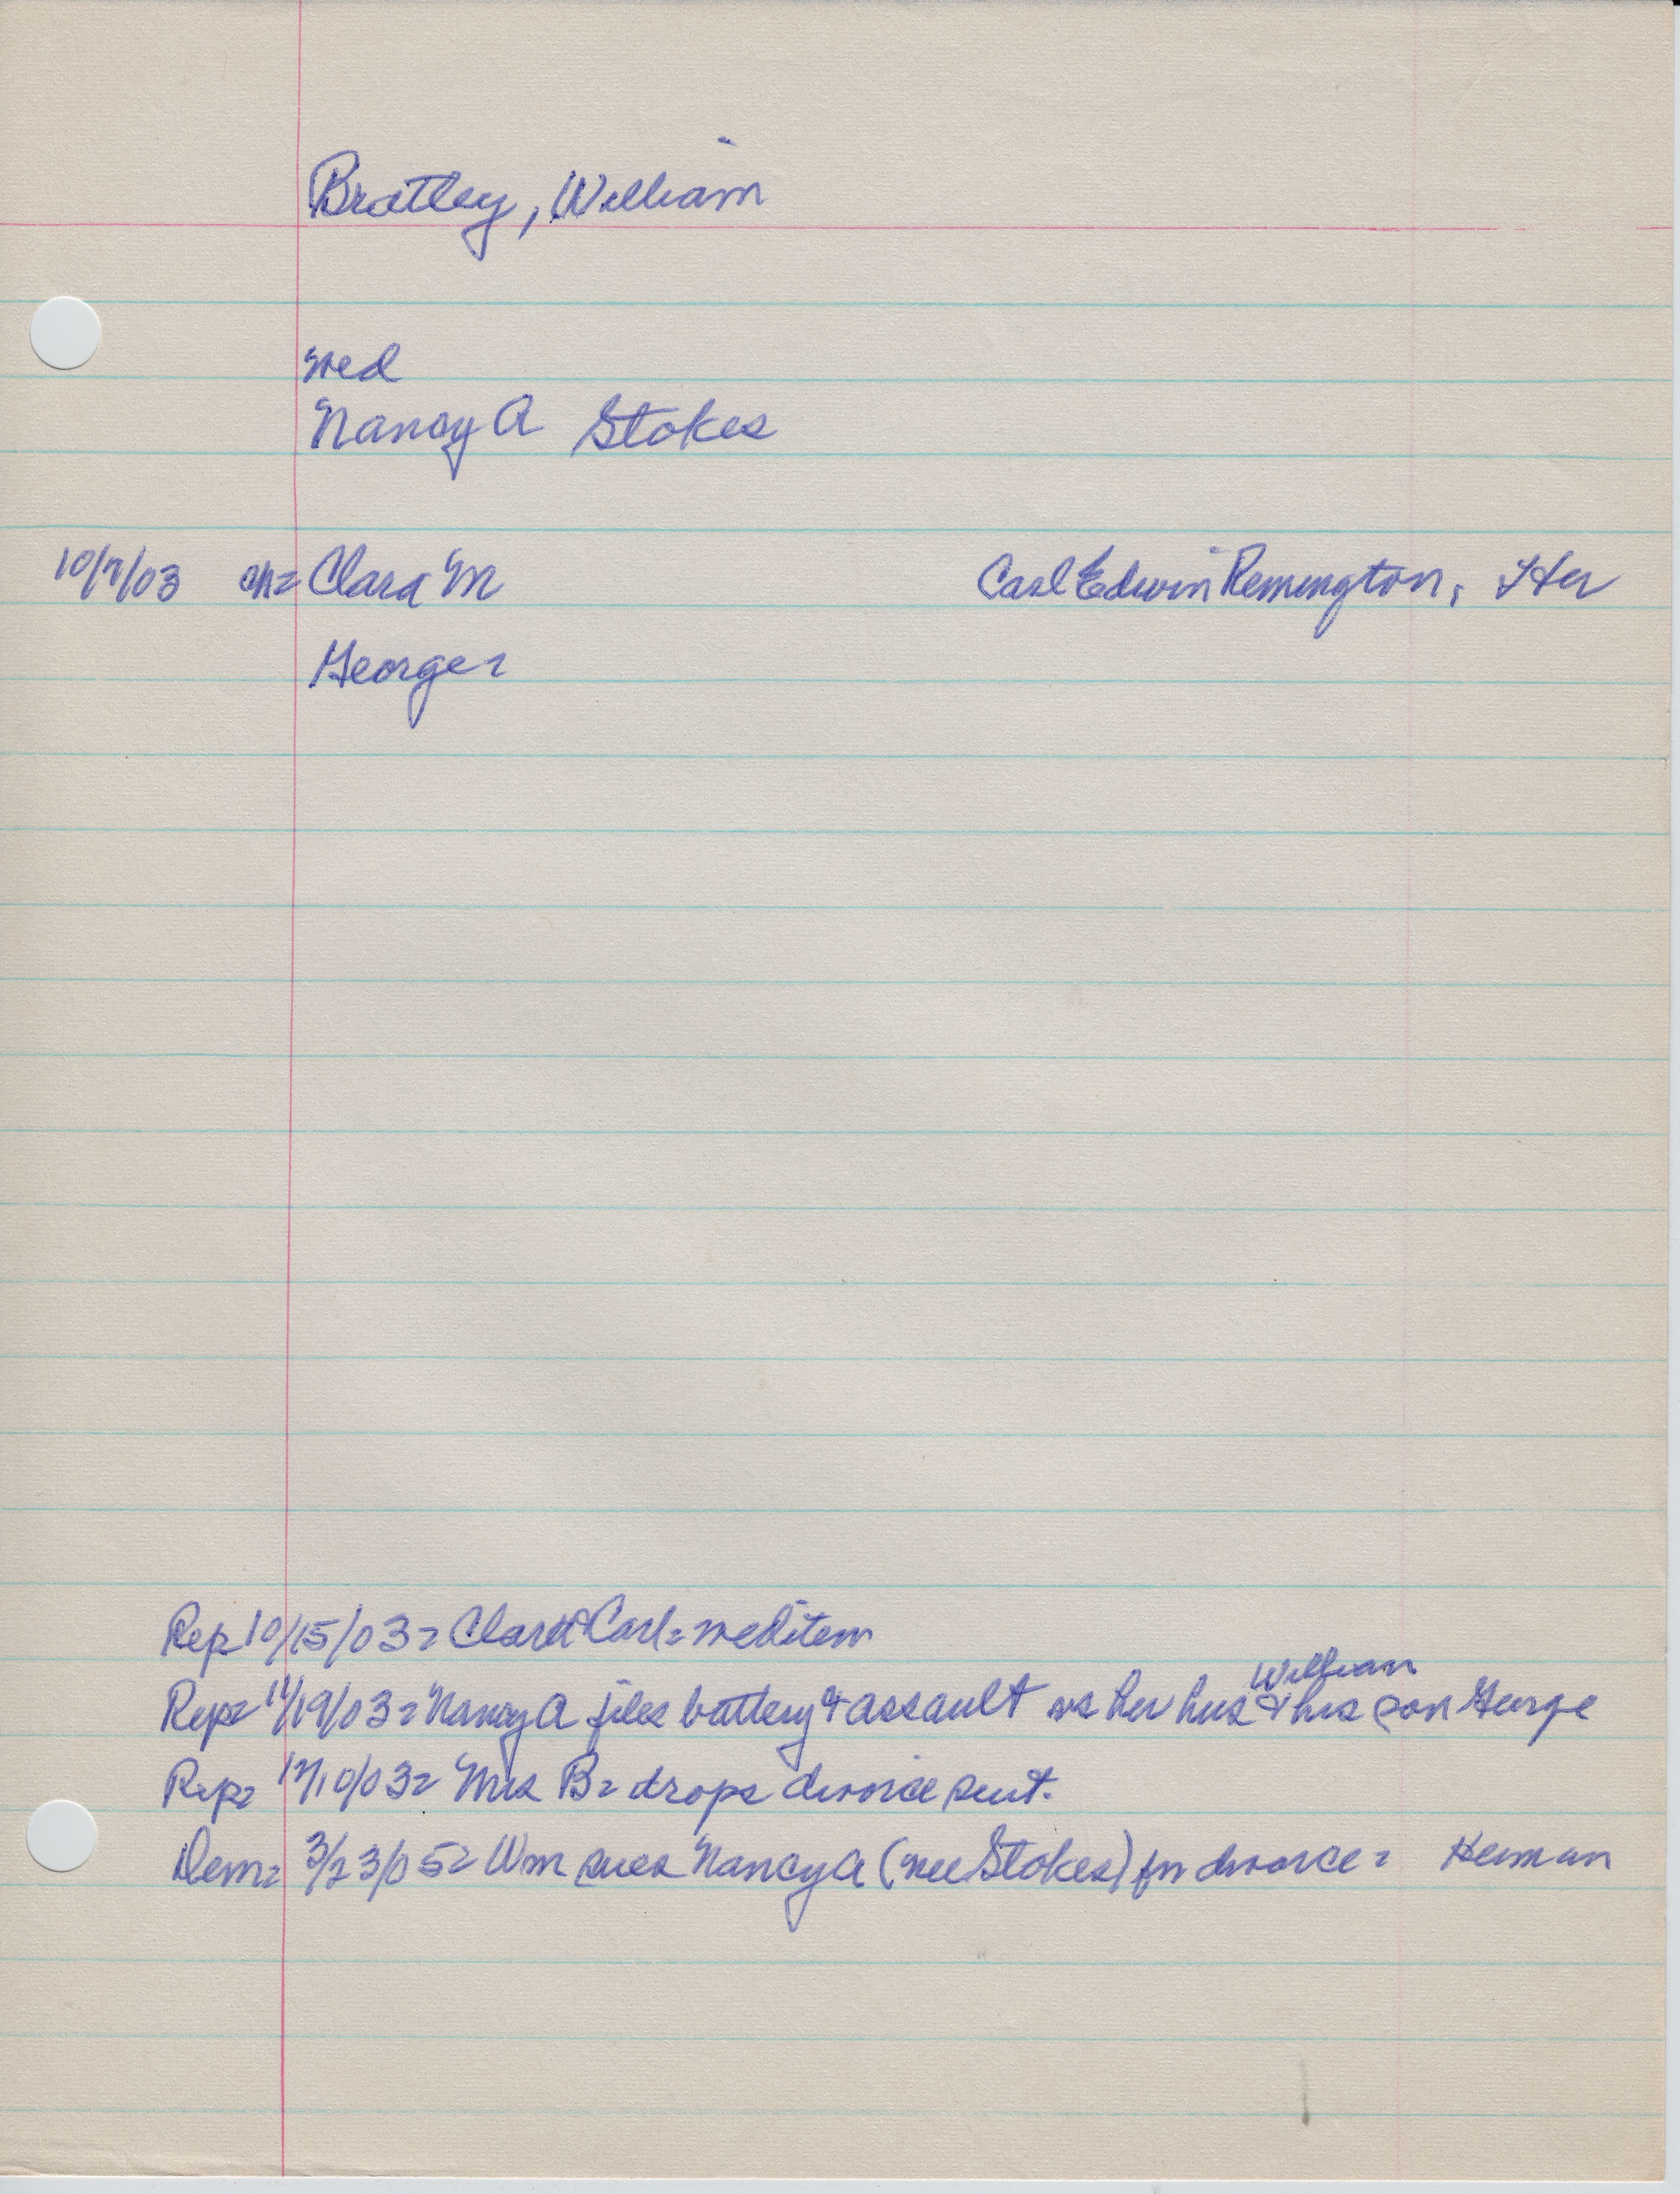 Bratley, William
wed
Nancy A Stokes
10/7/03 ch= Clara M Carl Edwin Remington, Her
George=
Rep 10/15/03= Clara & Carl= wed item
Rep= 11/19/03= Nancy A files battery & assault vs her hus William & his son George
Rep= 12/10/03= Mrs B= drops divorce suit.
Dem= 3/23/05= Wm sues Nancy A (nee Stokes) for divorce= Herman